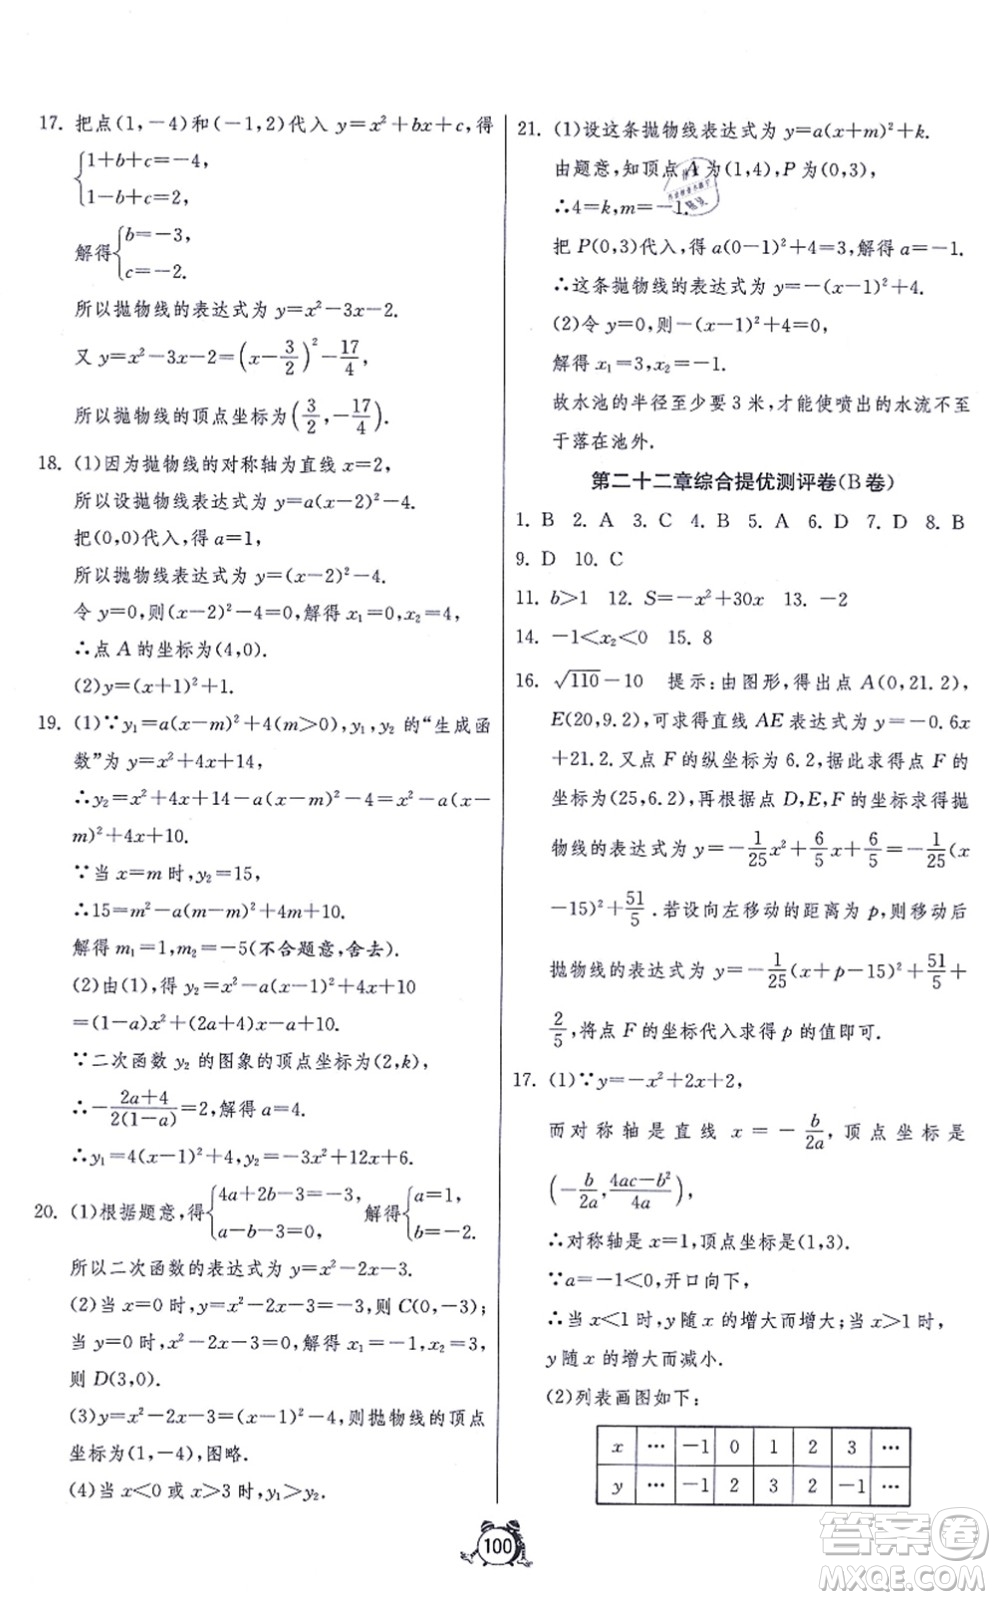 17. 把点(1,-4)和(-1,2)代入 y=x²+bx+c,得
{1+b+c=-4,
1-b+c=2,
解得{b=-3,
c=-2.
所以抛物线的表达式为 y=x²-3x-2.
又 y=x²-3x-2=(x-3/2)²-17/4,
所以抛物线的顶点坐标为(3/2,-17/4).
18. (1)因为抛物线的对称轴为直线 x=2,
所以设抛物线表达式为 y=a(x-2)²-4.
把(0,0)代入,得 a=1,
所以抛物线表达式为 y=(x-2)²-4.
令 y=0,则(x-2)²-4=0,解得 x₁=0,x₂=4,
∴点 A 的坐标为(4,0).
(2)y=(x+1)²+1.
19. (1)∵y₁=a(x-m)²+4(m>0),y₁,y₂ 的“生成函
数”为 y=x²+4x+14,
∴y₂=x²+4x+14-a(x-m)²-4=x²-a(x-
m)²+4x+10.
∵当 x=m 时,y₂=15,
∴15=m²-a(m-m)²+4m+10.
解得 m₁=1,m₂=-5(不合题意,舍去).
(2)由(1),得 y₂=x²-a(x-1)²+4x+10
=(1-a)x²+(2a+4)x-a+10.
∵二次函数 y₂ 的图象的顶点坐标为(2,k),
∴-(2a+4)/(2(1-a))=2,解得 a=4.
∴y₁=4(x-1)²+4,y₂=-3x²+12x+6.
20. (1)根据题意,得{4a+2b-3=-3, 解得{a=1,
a-b-3=0, b=-2.
所以二次函数的表达式为 y=x²-2x-3.
(2)当 x=0 时,y=x²-2x-3=-3,则 C(0,-3);
当 y=0 时,x²-2x-3=0,解得 x₁=-1,x₂=3,
则 D(3,0).
(3)y=x²-2x-3=(x-1)²-4,则抛物线的顶点
坐标为(1,-4),图略.
(4)当 x<0 或 x>3 时,y₁>y₂.
21. (1)设这条抛物线表达式为 y=a(x+m)²+k.
由题意,知顶点 A 为(1,4),P 为(0,3),
∴4=k,m=-1.
把 P(0,3)代入,得 a(0-1)²+4=3,解得 a=-1.
∴这条抛物线的表达式为 y=-(x-1)²+4.
(2)令 y=0,则-(x-1)²+4=0,
解得 x₁=3,x₂=-1.
故水池的半径至少要 3 米,才能使喷出的水流不至
于落在池外.
第二十二章综合提优测评卷(B 卷)
1. B 2. A 3. C 4. B 5. A 6. D 7. D 8. B
9. D 10. C
11. b>1 12. S=-x²+30x 13. -2
14. -1<x₂<0 15. 8
16. √110-10 提示:由图形,得出点 A(0,21.2),
E(20,9.2),可求得直线 AE 表达式为 y=-0.6x
+21.2. 又点 F 的纵坐标为 6.2,据此求得点 F 的
坐标为(25,6.2),再根据点 D,E,F 的坐标求得抛
物线的表达式为 y=-1/25x²+6/5x+6/5=-1/25(x
-15)²+51/5. 若设向左移动的距离为 p,则移动后
抛物线的表达式为 y=-1/25(x+p-15)²+51/5+
2/5,将点 F 的坐标代入求得 p 的值即可.
17. (1)∵y=-x²+2x+2,
而对称轴是直线 x=-b/2a,顶点坐标是
(-b/2a,(4ac-b²)/4a),
∴对称轴是 x=1,顶点坐标是(1,3).
∵a=-1<0,开口向下,
∴当 x<1 时,y 随 x 的增大而增大;当 x>1 时,
y 随 x 的增大而减小.
(2)列表画图如下:
x … -1 0 1 2 3 …
y … -1 2 3 2 -1 …
100
答案卷
MXQE.COM